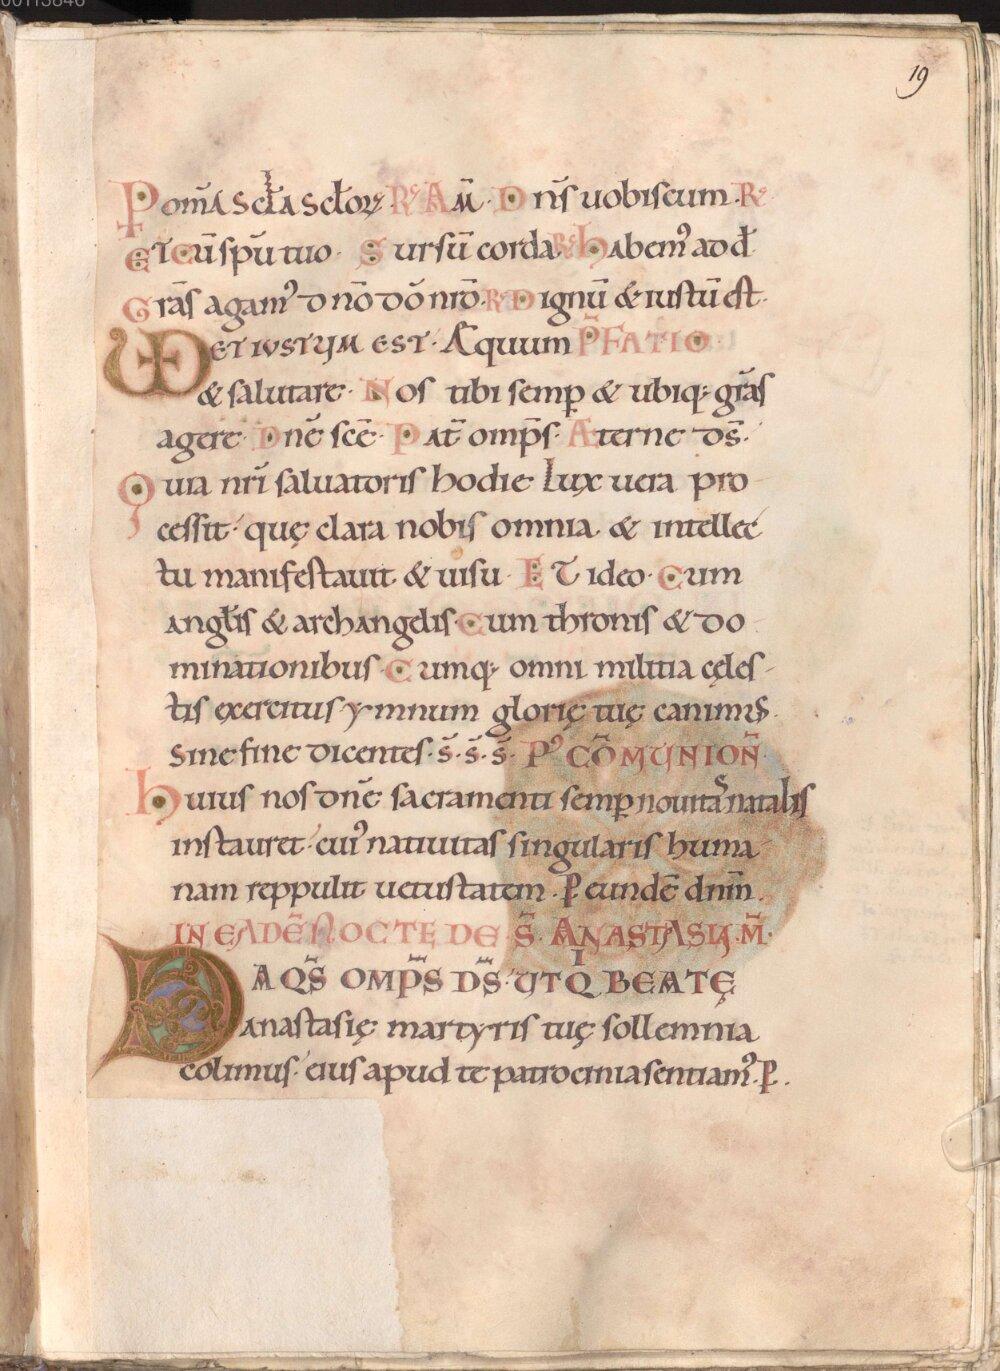 19
P om̄a scła scłoꝝ. R͛ Am̄. Dn̄s uobiscum. R͛
Et cū spū tuo. Sursū corda. R͛ habem᾿ ad d̄
Grās agam᾿ dn̄o dō nrō. R͛ Dignū & iustū est.
VD et iustum est. Aequum P̄fatio
& salutare. Nos tibi semꝑ & ubiq; grās
agere. Dn̄e sc̄e. Pat̄ omp̄s. Aeterne d̄s.
Quia nr̄i saluatoris hodie lux uera pro
cessit. quę clara nobis omnia. & intellec
tu manifestauit & uisu. Et ideo. Cum
anglis & archangelis. Cum thronis & do
minationibus. Cumq; omni militia cęles
tis exercitus. ymnum glorię tuę canimus.
Sine fine dicentes. s̄. s̄. s̄. P᾿ cōmunion̄
huius nos dn̄e sacramenti semꝑ nouitas natalis
instauret. cui᾿ natiuitas singularis huma
nam reppulit uetustatem. ꝑ eundē dnm̄.
IN EADĒ NOCTE DE S̄. ANASTASIA. M̄.
DA QS̄ OMP̄S DS̄. UT QI BEATĘ
anastasię martyris tuę sollemnia
colimus. eius apud te patrocinia sentiam᾿. ꝑ.